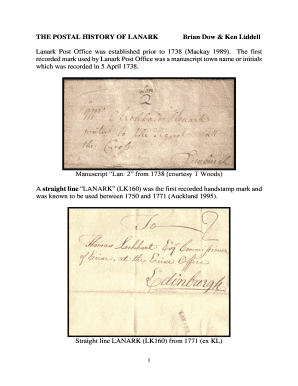 THE POSTAL HISTORY OF LANARK Brian Dow & Ken Liddell
Lanark Post Office was established prior to 1738 (Mackay 1989). The first
recorded mark used by Lanark Post Office was a manuscript town name or initials
which was recorded in 5 April 1738.
Lan
2
writer to the Signet at
the Cross
Edinburgh
Manuscript “Lan: 2” from 1738 (courtesy T Woods)
A straight line “LANARK” (LK160) was the first recorded handstamp mark and
was known to be used between 1750 and 1771 (Auckland 1995).
To
Thomas Lockhart Esq Commissioner
of Excise, at the Excise Office
Edinburgh
Straight line LANARK (LK160) from 1771 (ex KL)
1